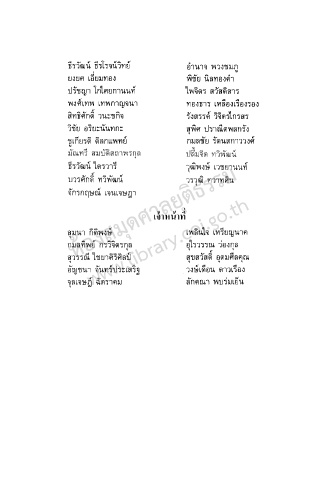 ธีรวัฒน์ ธีรโรจน์วิทย์
ยงยศ เอี่ยมทอง
ปรัชญา โกไศยกานนท์
พงศ์เทพ เทพกาญจนา
สิทธิศักดิ์ วนะชกิจ
วิชัย อริยะนันทกะ
ชูเกียรติ ดิลกแพทย์
มัณทรี สมบัติสถาพรกุล
ธีรวัฒน์ ไตรวารี
บวรศักดิ์ ทวิพัฒน์
จักรกฤษณ์ เจนเจษฎา
อำนาจ พวงชมภู
พิชัย นิลทองคำ
ไพจิตร สวัสดิสาร
ทองธาร เหลืองเรืองรอง
รังสรรค์ วิจิตรไกรสร
สุพิศ ปราณีตพลกรัง
กมลชัย รัตนสกาววงศ์
ปลื้มจิต ทวิพัฒน์
วุฒิพงษ์ เวชยานนท์
วรวุฒิ ทวาทศิน
เจ้าหน้าที่
สุมนา กิติพงษ์
กมลทิพย์ กรวิจิตรกุล
สุวรรณี ไชยาศิริศิลป์
อัญชนา จันทร์ประเสริฐ
จุลเจษฎิ์ ฉัตราคม
เพลินใจ เหรียญนาค
อุไรวรรณ ว่องกุล
สุขสวัสดิ์ อุดมศีลคุณ
วงษ์เดือน ดาวเรือง
ลักคณา พบร่มเย็น
ห้องสมุดศาลยุติธรรม
www.library.coj.go.th